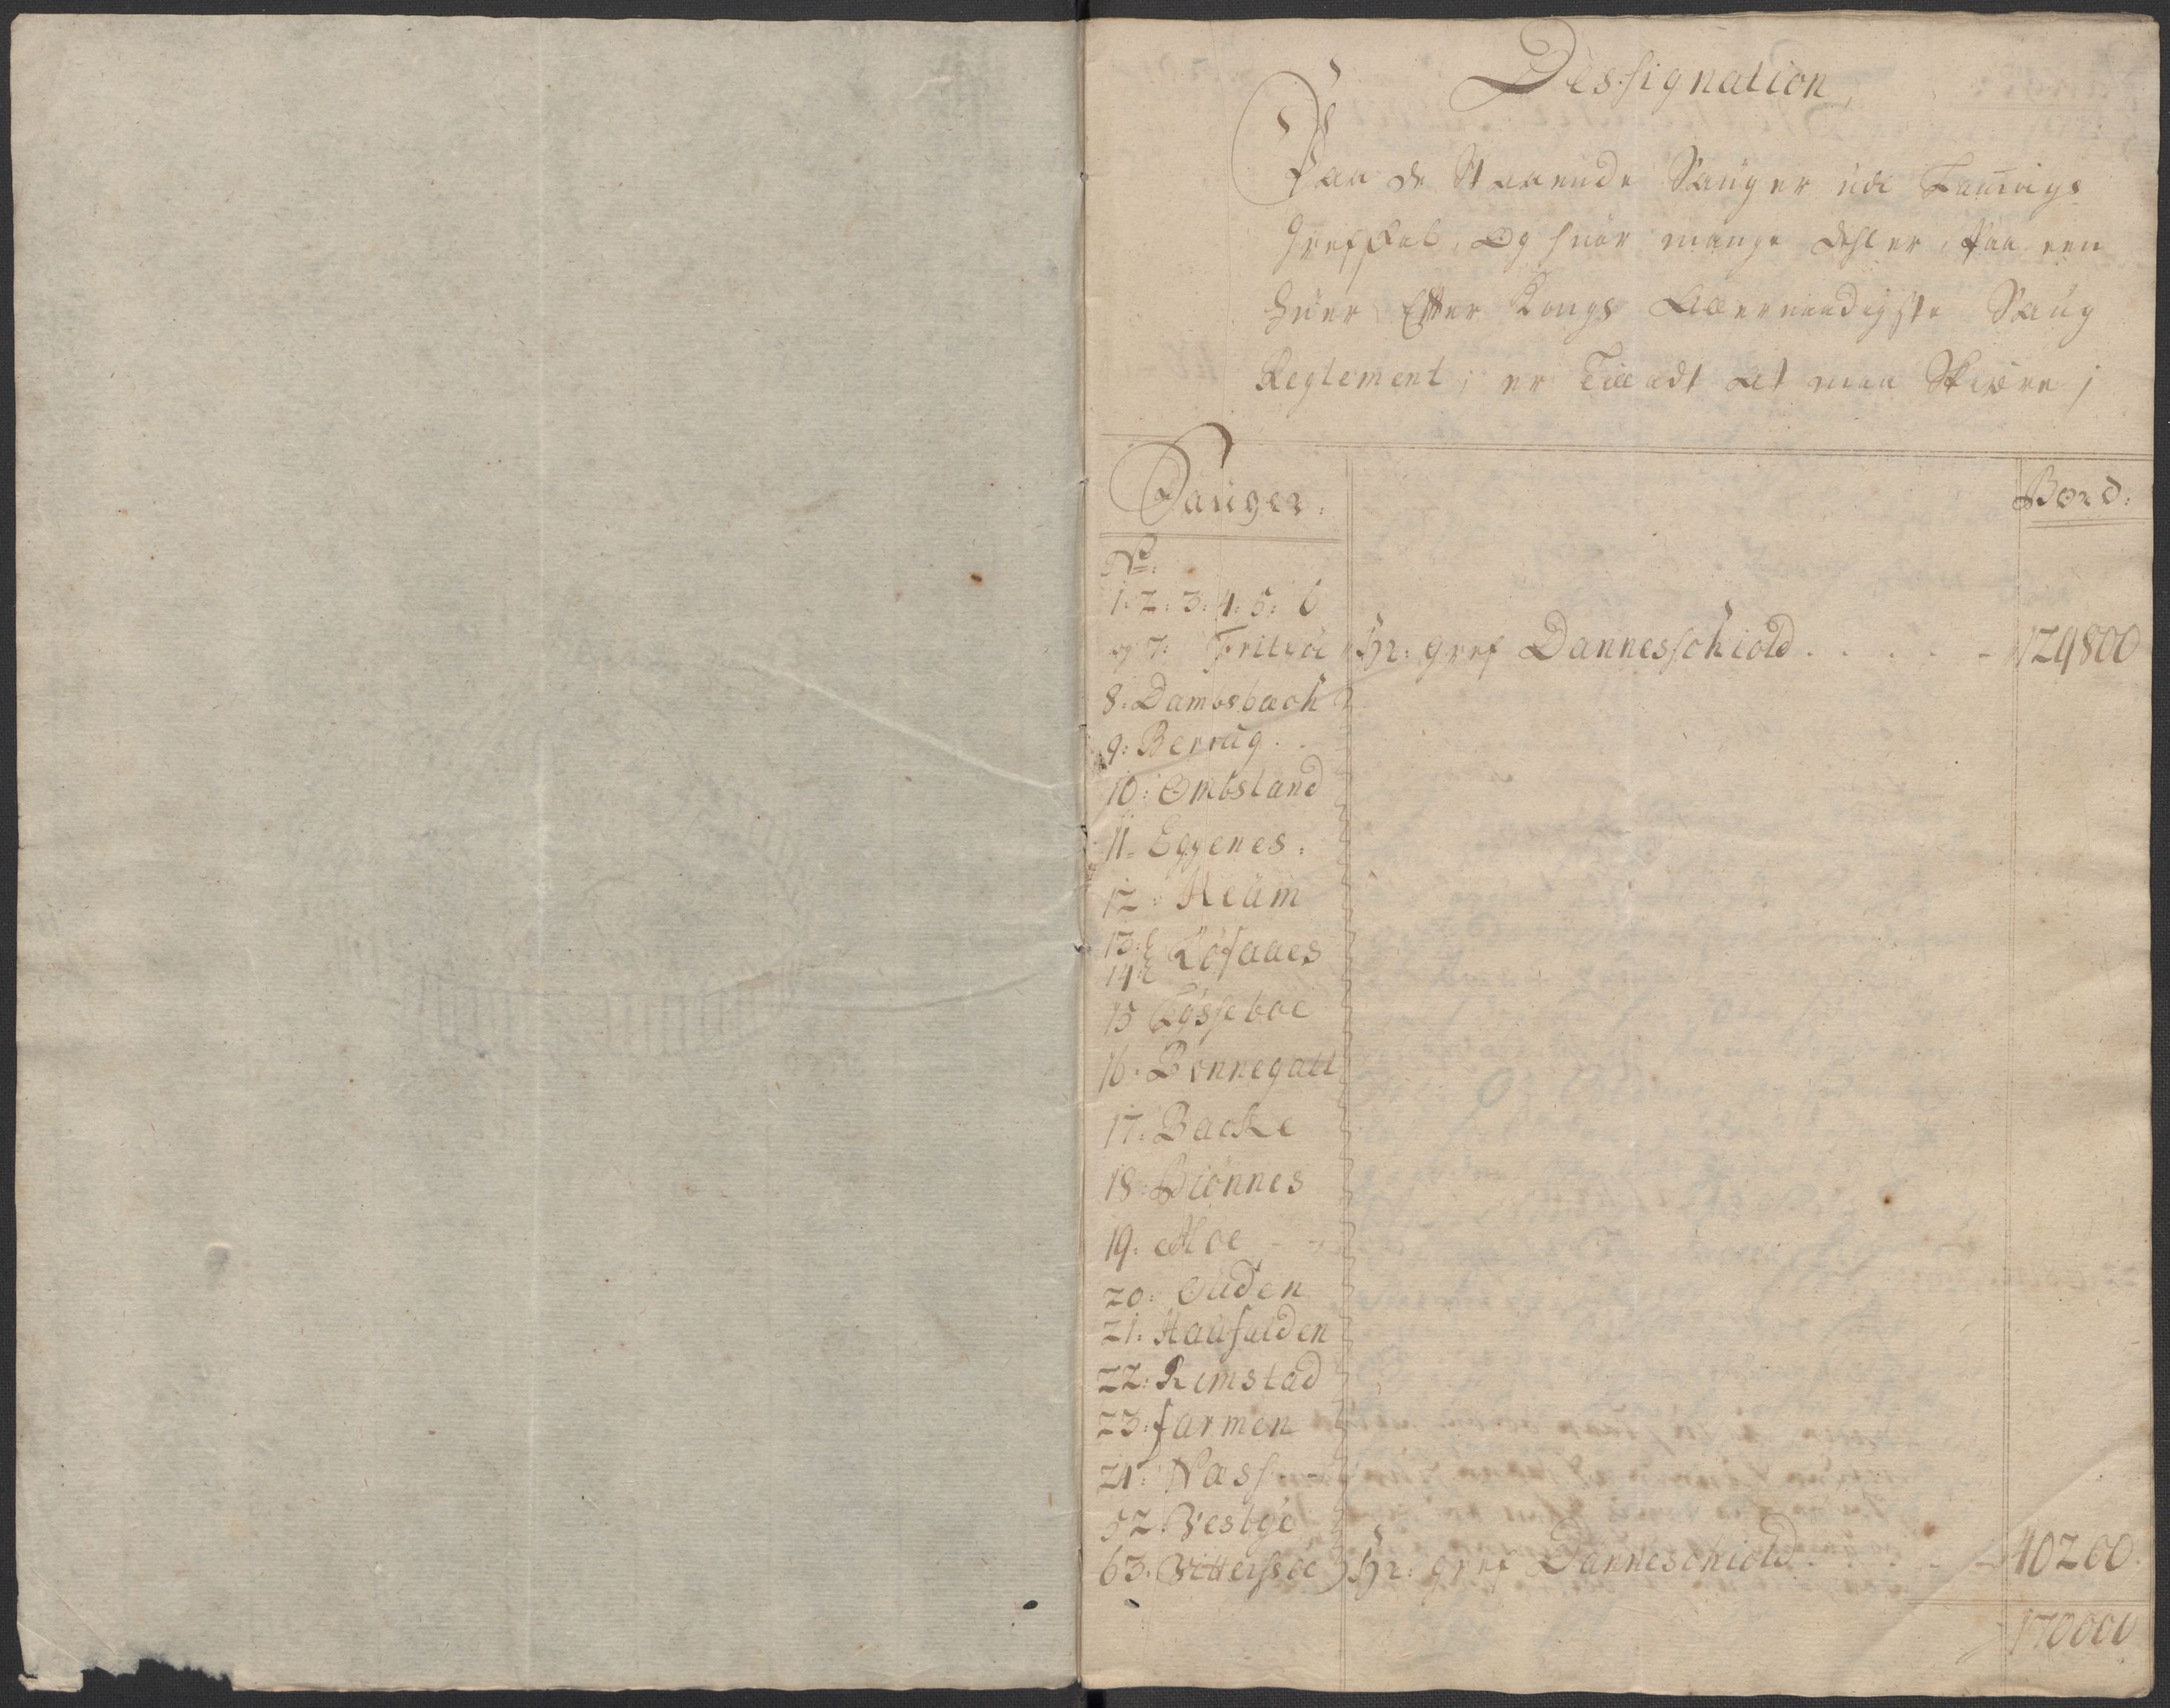 Dessignation,
Paa de Staaende Sauger udi Laurvigs
Grefskab, Og huor mange dehler, Paa een
Huer Effter Kongs Allernaadigste Saug
Reglement; er Tilladt At maa Skiære;
Sauger:
Bord:
No:
1: 2: 3: 4: 5: 6
og 7: Fritzøe Hr: Gref Dannesschiold . . . . . - 129800
8: Dambsbach
9: Berrug . .
10: Ombsland
11. Eggenes:
12: Heüm
13: Løfaaes
14:
15 Løsseboe
16. Bonnegall
17: Backe
18: Biønnes
19. Moe - -
20: Ouden
21: Haufalden
22: Rimstad
23: farmen
24: Næss
52 Vesbye
63. Vittersøe Hr: Gref Danneschiold . . . - 40200.
170000